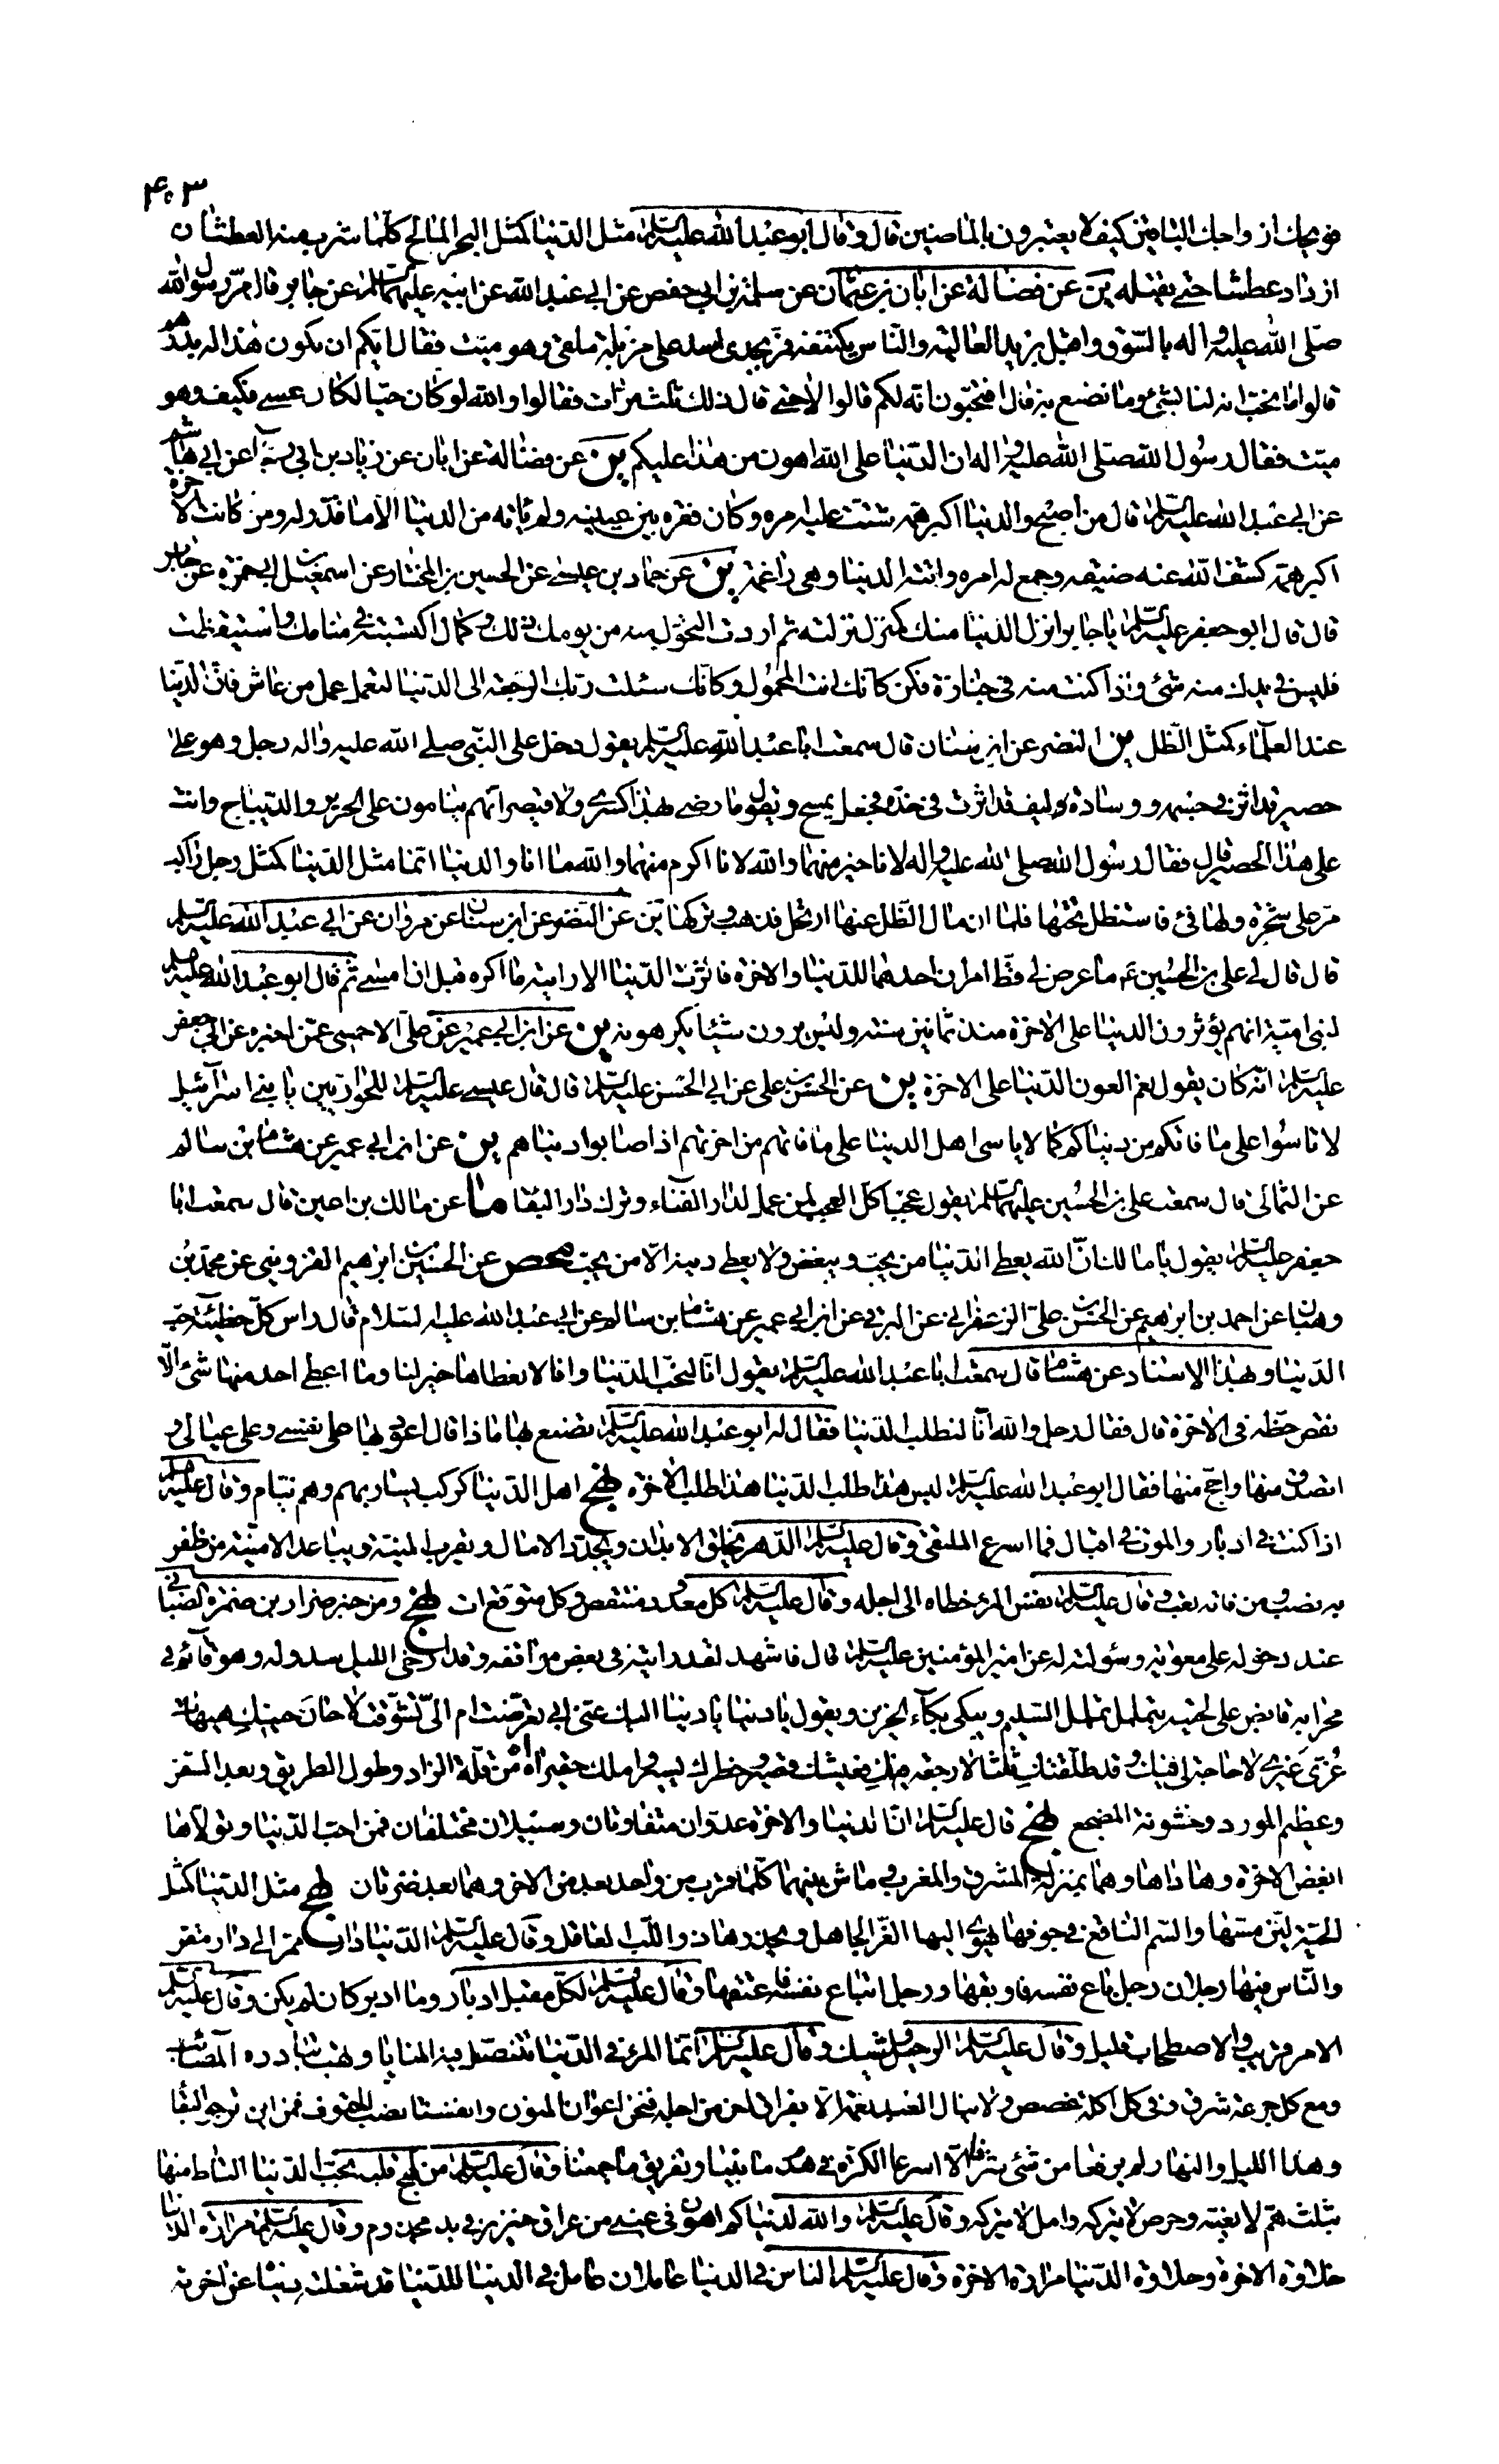 ۴۰۳
فويحك ازواجك الباقين كيف لا يعتبرون بالماضين قال وقال ابو عبد الله عليه السلم مثل الدنيا كمثل البحر المالح كلما شرب منه العطشان
ازداد عطشا حتى يقتله ين عن فضالة عن ابان بن عثمان عن سلمة بن ابي حفص عن ابي عبد الله عن ابيه عليهما السلم عن جابر قال مر رسول الله
صلى الله عليه واله بالسوق واقبل يريد العالية والناس يكتنفه فمر بجدي اسك على مزبلة ملقى وهو ميت فقال ايكم ان يكون هذا له بدرهم
قالوا ما نحب انه لنا بشئ وما نصنع به قال افتحبون انه لكم قالوا لا حتى قال ذلك ثلث مرات فقالوا والله لو كان حيا لكان عيبا فكيف وهو
ميت فقال رسول الله صلى الله عليه واله ان الدنيا على الله اهون من هذا عليكم ين عن فضالة عن ابان عن زياد بن ابي عن ابي هاشم
عن ابي عبد الله عليه السلم قال من اصبح والدنيا اكبر همه شتت عليه امره وكان فقره بين عينيه ولم ياته من الدنيا الا ما قدر له ومن كانت الاخرة
اكبر همه كشف الله عنه ضيقه وجمع له امره واتته الدنيا وهي راغمة ين عن حماد بن عيسى عن الحسين بن المختار عن اسمعيل بن ابي حمزة عن جابر
قال قال ابو جعفر عليه السلم يا جابر انزل الدنيا منك كمنزل نزلته ثم اردت التحول منه من يومك ذلك وكمال اكتسبته في منامك واستيقظت
فليس في يدك منه شئ واذا كنت منه في جنازة فكن كانك انت المحمول وكانك سئلت ربك الرجعة الى الدنيا لتعمل عمل من عاش فان الدنيا
عند العلماء كمثل الظل ين النضر عن ابن سنان قال سمعت ابا عبد الله عليه السلم يقول دخل على النبي صلى الله عليه واله رجل وهو على
حصير قد اثر في جنبه ووسادة ليف قد اثرت في خده فجعل يمسح ويقول ما رضي بهذا كسرى ولا قيصر انهم ينامون على الحرير والديباج وانت
على هذا الحصير قال فقال رسول الله صلى الله عليه واله لانا خير منهما والله لانا اكرم منهما والله ما انا والدنيا انما مثل الدنيا كمثل رجل راكب
مر على شجرة ولها فئ فاستظل تحتها فلما ان مال الظل عنها ارتحل فذهب وتركها ين عن النضر عن ابن سنان عن مروان عن ابي عبد الله عليه السلم
قال قال لي علي بن الحسين ع ما عرض لي قط امران احدهما للدنيا والاخرة فاثرت الدنيا الا رايت ما اكره قبل ان امسي ثم قال ابو عبد الله عليه السلم
لبني امية انهم يؤثرون الدنيا على الاخرة منذ ثمانين سنة وليس يرون شيئا يكرهونه ين عن ابن ابي عمير عن علي الاحمسي عمن اخبره عن ابي جعفر
عليه السلم انه كان يقول نعم العون الدنيا على الاخرة ين عن الحسن بن علي عن ابي الحسن عليه السلم قال قال عيسى عليه السلم للحواريين يا بني اسرائيل
لا تاسوا على ما فاتكم من دنياكم كما لا ياسى اهل الدنيا على ما فاتهم من اخرتهم اذا اصابوا دنياهم ين عن ابن ابي عمير عن هشام بن سالم
عن الثمالي قال سمعت علي بن الحسين عليهما السلم يقول عجبا كل العجب لمن عمل لدار الفناء وترك دار البقا ما عن مالك بن اعين قال سمعت ابا
جعفر عليه السلم يقول يا مالك ان الله يعطي الدنيا من يحب ويبغض ولا يعطي دينه الا من يحب محص عن الحسين بن ابرهيم القزويني عن محمد بن
وهبان عن احمد بن ابرهيم عن الحسن بن علي الزعفراني عن البرقي عن ابن ابي عمير عن هشام بن سالم عن ابي عبد الله عليه السلام قال راس كل خطيئة حب
الدنيا وبهذا الاسناد عن هشام قال سمعت ابا عبد الله عليه السلم يقول انا لنحب الدنيا وانا لا نعطاها خير لنا وما اعطي احد منها شئ الا
نقص حظه في الاخرة قال فقال رجل والله انا لنطلب الدنيا فقال له ابو عبد الله عليه السلم تصنع بها ماذا قال اعود بها على نفسي وعلى عيالي و
اتصدق منها واحج منها فقال ابو عبد الله عليه السلم ليس هذا طلب الدنيا هذا طلب الاخرة نهج اهل الدنيا كركب يسار بهم وهم نيام وقال عليه السلم
اذا كنت في ادبار والموت في اقبال فما اسرع الملتقى وقال عليه السلم الدهر يخلق الابدان ويجدد الامال ويقرب المنية ويباعد الامنية من ظفر
به نصب ومن فاته تعب وقال عليه السلم نفس المرء خطاه الى اجله وقال عليه السلم كل معدود منتقص وكل متوقع ات نهج ومن خبر ضرار بن ضمرة الضبابي
عند دخوله على معوية وسؤلته له عن امير المؤمنين عليه السلم قال فاشهد لقد رايته في بعض مواقفه وقد ارخى الليل سدوله وهو قائم في
محرابه قابض على لحيته يتململ تململ السليم ويبكي بكاء الحزين ويقول يا دنيا يا دنيا اليك عني ابي تعرضت ام الي تشوقت لا حان حينك هيهات
غري غيري لا حاجة لي فيك وقد طلقتك ثلثا لا رجعة فيها فعيشك قصير وخطرك يسير واملك حقير اه من قلة الزاد وطول الطريق وبعد السفر
وعظيم المورد وخشونة المضجع نهج قال عليه السلم ان الدنيا والاخرة عدوان متفاوتان وسبيلان مختلفان فمن احب الدنيا وتولاها
ابغض الاخرة وعاداها وهما بمنزلة المشرق والمغرب وماش بينهما كلما قرب من واحد بعد من الاخر وهما بعد ضرتان نهج مثل الدنيا كمثل
الحية لين مسها والسم الناقع في جوفها يهوي اليها الغر الجاهل ويحذرها ذو اللب العاقل وقال عليه السلم الدنيا دار ممر الى دار مقر
والناس فيها رجلان رجل باع نفسه فاوبقها ورجل ابتاع نفسه فاعتقها وقال عليه السلم لكل مقبل ادبار وما ادبر كان لم يكن وقال عليه السلم
الامر قريب والاصطحاب قليل وقال عليه السلم الرحيل وشيك وقال عليه السلم انما المرء في الدنيا تنتضل فيه المنايا ونهب تبادره المصائب
ومع كل جرعة شرق وفي كل اكلة غصص ولا ينال العبد نعمة الا بفراق اخرى من اجله فنحن اعوان المنون وانفسنا نصب الحتوف فمن اين نرجو البقا
وهذا الليل والنهار لم يرفعا من شئ شرفا الا اسرعا الكرة في هدم ما بنيا وتفريق ما جمعنا وقال عليه السلم من لهج قلبه بحب الدنيا التاط منها
بثلث هم لا يغبه وحرص لا يتركه وامل لا يدركه وقال عليه السلم والله لدنياكم اهون في عيني من عراق خنزير في يد مجذوم وقال عليه السلم مرارة الدنيا
حلاوة الاخرة وحلاوة الدنيا مرارة الاخرة وقال عليه السلم الناس في الدنيا عاملان عامل في الدنيا للدنيا قد شغلته دنياه عن اخرته